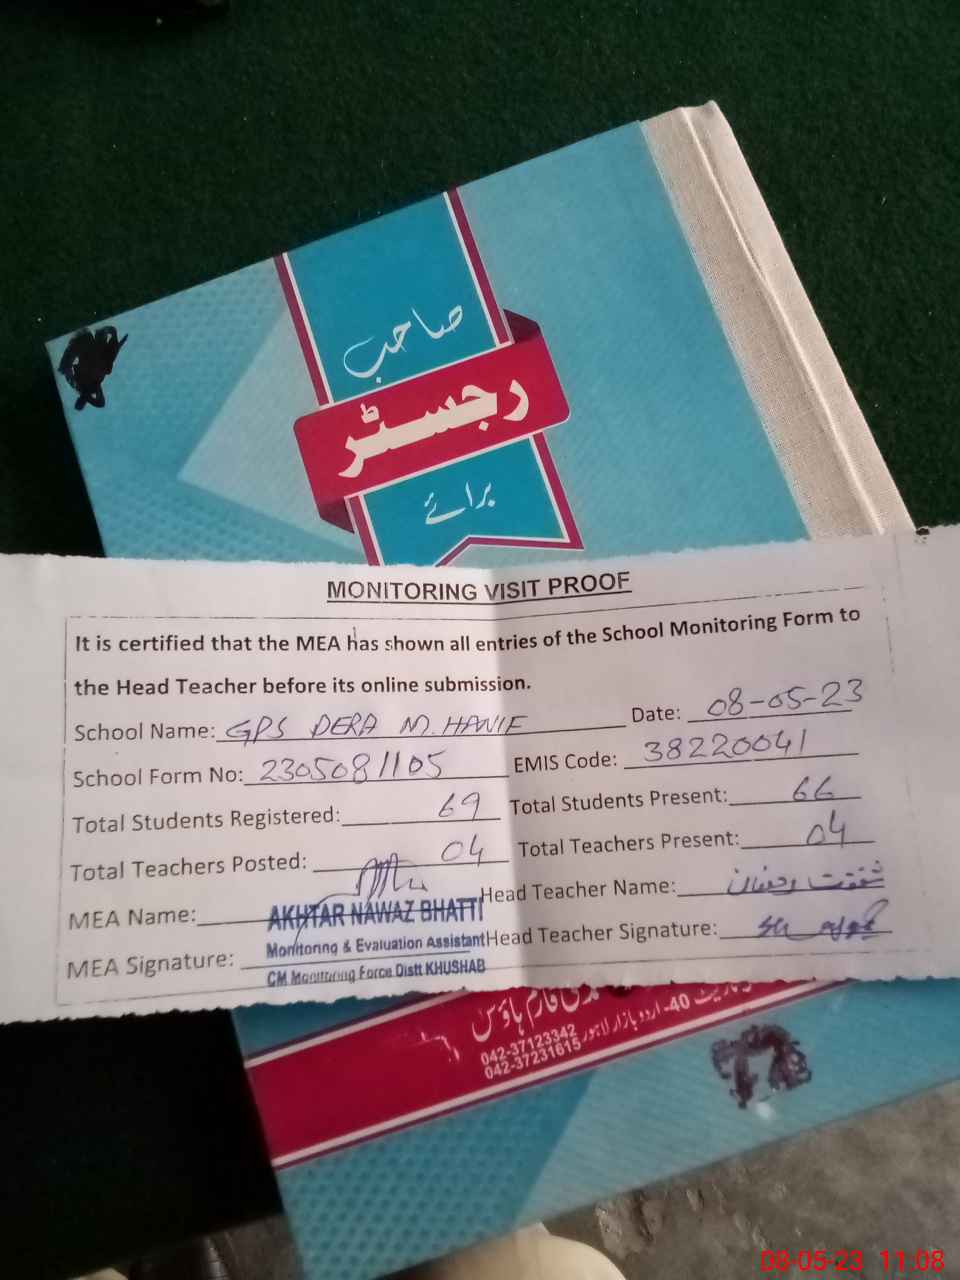 صاحب
رجسٹر
برائے
MONITORING VISIT PROOF
It is certified that the MEA has shown all entries of the School Monitoring Form to
the Head Teacher before its online submission.
School Name: GPS DERA M. HANIF Date: 08-05-23
School Form No: 2305081105 EMIS Code: 38220041
Total Students Registered: 69 Total Students Present: 66
Total Teachers Posted: 04 Total Teachers Present: 04
MEA Name: AKHTAR NAWAZ BHATTI Head Teacher Name:
Monitoring & Evaluation Assistant Head Teacher Signature:
MEA Signature: CM Monitoring Force Distt KHUSHAB
فارم ہاؤس
40- اردو بازار لاہور
042-37123342
042-37231615
08-05-23 11:08